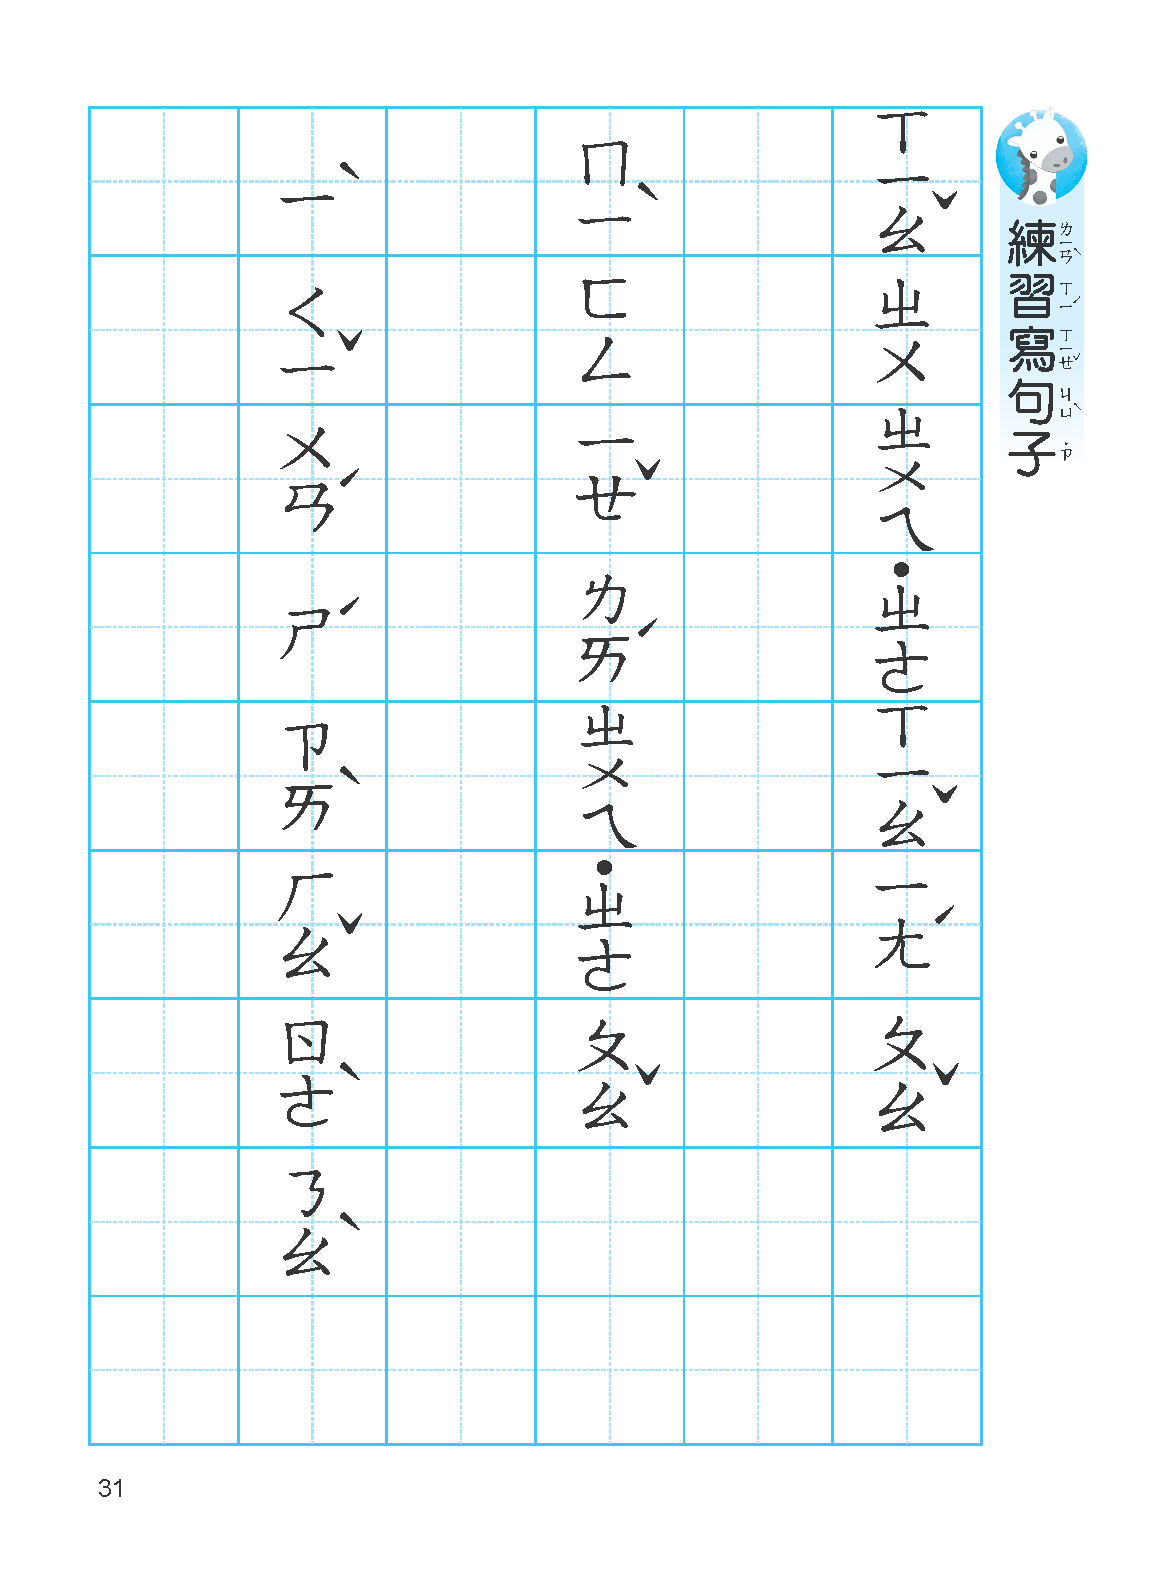 練習寫句子
ㄌㄧㄢˋ ㄒㄧˊ ㄒㄧㄝˇ ㄐㄩˋ ˙ㄗ
ㄒㄧㄠˇ ㄓㄨ ㄓㄨㄟ ˙ㄓㄜ ㄒㄧㄠˇ ㄧㄤˊ ㄆㄠˇ
ㄇㄧˋ ㄈㄥ ㄧㄝˇ ㄌㄞˊ ㄓㄨㄟ ˙ㄓㄜ ㄆㄠˇ
ㄧˋ ㄑㄧˇ ㄨㄢˊ ㄕˊ ㄗㄞˋ ㄏㄠˇ ㄖㄜˋ ㄋㄠˋ
31